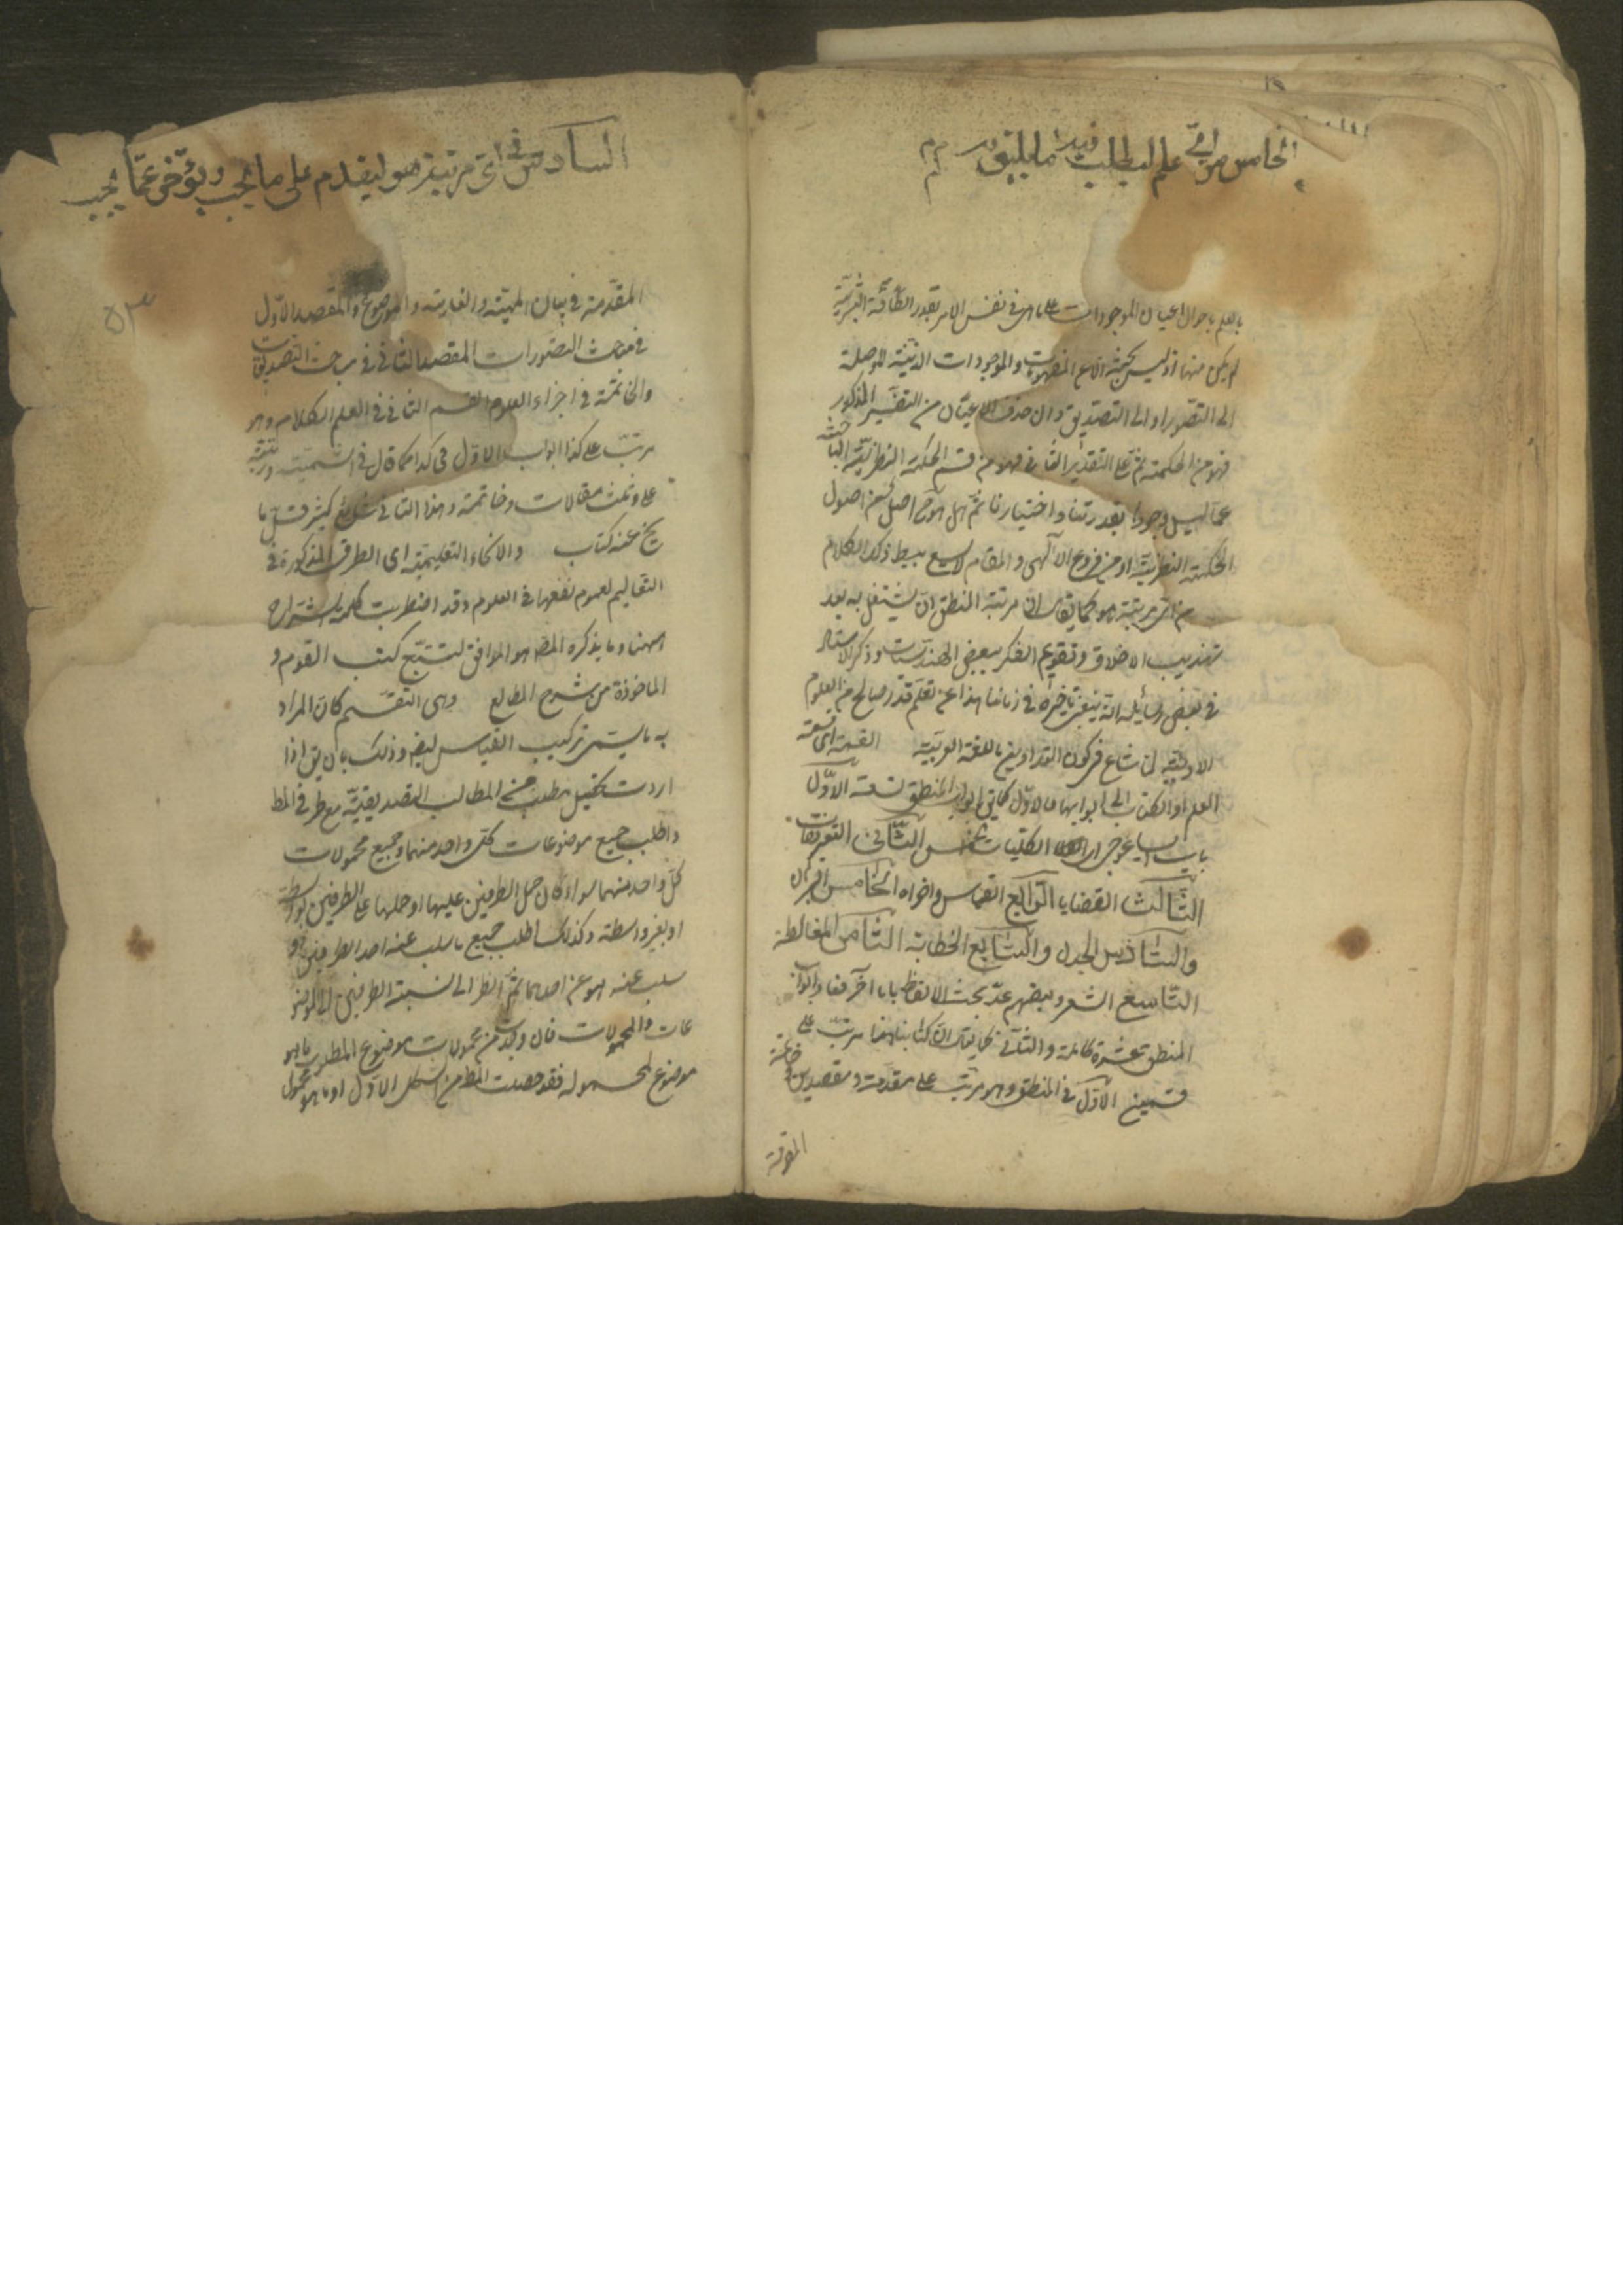 الخامس من اي علم ليطلب فيه ما يليق به
بالعلم باحوال اعيان الموجودات على ما هى فى نفس الامر بقدر الطاقة البشرية
لم يكن منها اذ ليس بحثه الا عن المفهومات والموجودات الذهنية الموصلة
الى التصور او الى التصديق وان حذف الاعيان من التفسير المذكور
فهو من الحكمة ثم على التقدير الثانى فهو من قسم الحكمة النظرية الباحثة
عما ليس وجودها بقدرتنا واختيارنا ثم هل هو ح اصل من اصول
الحكمة النظرية او من فروع الالهى والمقام لا يسع ببسط ذلك الكلام
من اى مرتبة هو كما يقال ان مرتبة المنطق ان يشتغل به بعد
تهذيب الاخلاق وتقويم الفكر ببعض الهندسيات وذكر الاستاد
فى بعض رسايله انه ينبغى تاخيره فى زماننا هذا عن تعلم قدر صالح من العلوم
الادبية لما شاع من كون التداوين باللغة العربية القسمة اى قسمة
العلم او الكتاب الى ابوابهما فالاول كما يق ابواب المنطق تسعة الاول
باب ايساغوجى اى الكليات الخمس الثانى التعريفات
الثالث القضايا الرابع القياس واخواه الخامس البرهان
والسادس الجدل والسابع الخطابة الثامن المغالطة
التاسع الشعر وبعضهم عد بحث الالفاظ بابا آخر فعاد ابواب
المنطق عشرة كاملة والثانى كما يقال ان كتابنا هذا مرتب على
قسمين الاول فى المنطق وهو مرتب على مقدمة ومقصدين وخاتمة
المقدمة
السادس فى اى مرتبة هو ليقدم على ما يجب ويؤخر عما يجب
٥٣
المقدمة فى بيان المهية والغاية والموضوع والمقصد الاول
فى مباحث التصورات المقصد الثانى فى مباحث التصديقات
والخاتمة فى اجزاء العلوم القسم الثانى فى العلم الكلام وهو
مرتب على كذا ابواب الاول فى كذا كما قال فى الشمسية ورتبته
على مقدمة وثلث مقالات وخاتمة وهذا الثانى شايع كثير قل ما
يخ عنه كتاب والانحاء التعليمية اى الطرق المذكورة فى
التعاليم لعموم نفعها فى العلوم وقد اضطربت كلمة الشراح
ههنا وما يذكره المص هو الموافق لتتبع كتب القوم و
الماخوذة من شرح المطالع وهى التقسيم كان المراد
به ما يسمى تركيب القياس ايض وذلك بان يق اذا
اردت تحصيل مطلب من المطالب التصديقية ضع طرفى المط
واطلب جميع موضوعات كل واحد منهما وجميع محمولات
كل واحد منهما سواء كان حمل الطرفين عليها او حملها على الطرفين بواسطة
او بغير واسطة وكذلك اطلب جميع ما سلب عنه احد الطرفين او
سلب عنه هو عن احدهما ثم انظر الى نسبة الطرفين الى الموضو
عات والمحمولات فان وجدت من محمولات موضوع المطلوب ما هو
موضوع لمحموله فقد حصلت المط من الشكل الاول او ما هو محمول